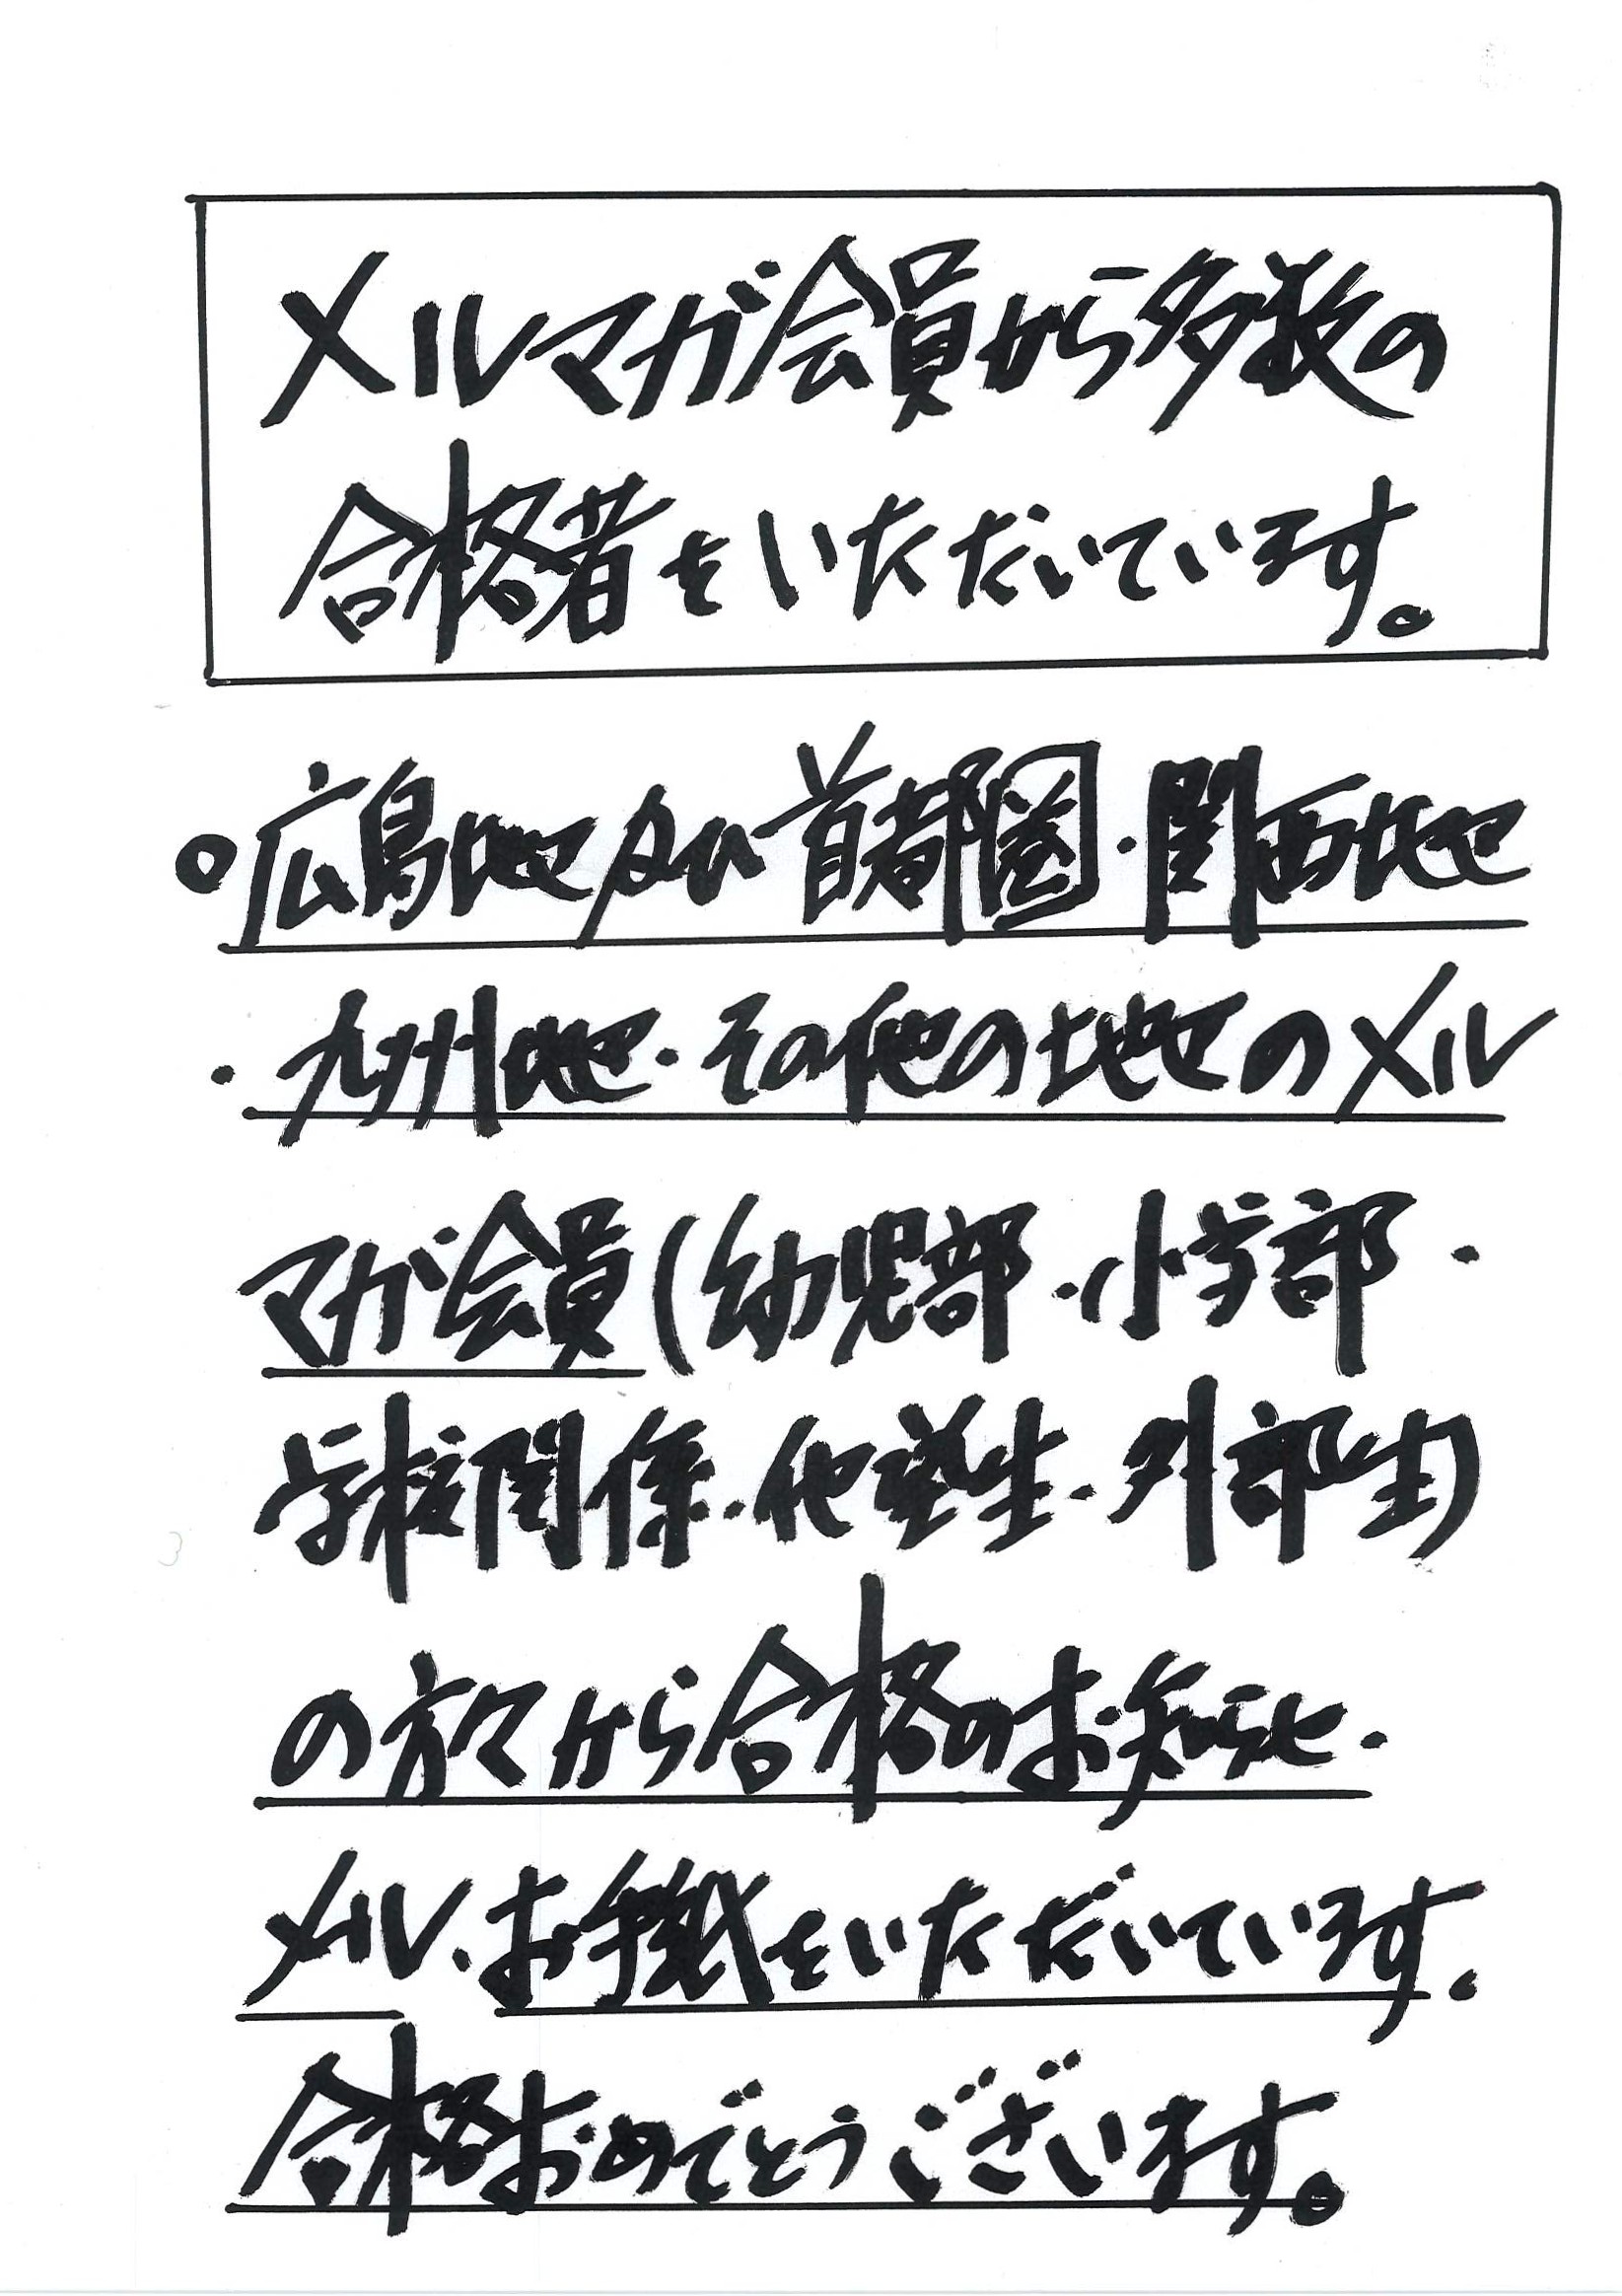 メルマガ会員から多数の
合格者をいただいています。
○広島地区及び首都圏・関西地区
・九州地区・その他の地区のメル
マガ会員(幼児部・小学部・
学校関係・他塾生・外部生)
の方々から合格のお知らせ・
メール、お手紙をいただいています。
合格おめでとうございます。